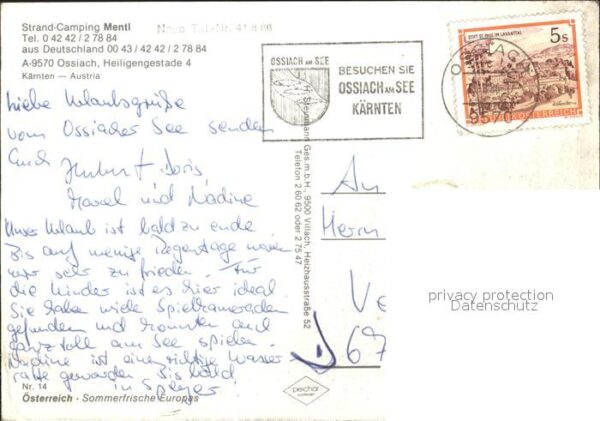 Strand-Camping Mentl
Tel. 0 42 42 / 2 78 84
aus Deutschland 00 43 / 42 42 / 2 78 84
A-9570 Ossiach, Heiligengestade 4
Kärnten — Austria
Neue Tel.-Nr. 41 8 86
OSSIACH AM SEE
BESUCHEN SIE
OSSIACH AM SEE
KÄRNTEN
OSSIACH
9570
STIFT ST. PAUL IM LAVANTTAL
5s
REPUBLIK ÖSTERREICH
Liebe Urlaubsgrüße
vom Ossiacher See senden
Euch Hubert Doris
Marcel und Nadine
Unser Urlaub ist bald zu ende.
Bis auf wenige Regentage waren
wir sehr zu frieden. Für
die Kinder ist es hier ideal
Sie haben viele Spielkameraden
gefunden und konnten auch
ganz toll am See spielen.
Nadine ist eine richtige Wasser
ratte geworden. Bis bald
in Speyer!
Ges.m.b.H., 9500 Villach, Heizhausstraße 52
Telefon 2 60 62 oder 2 75 47
An
Herrn
Ve
D 67
privacy protection
Datenschutz
Nr. 14
Österreich - Sommerfrische Europas